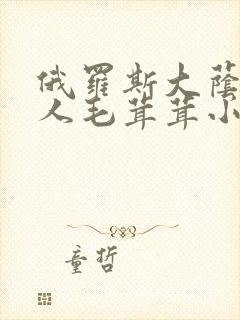 俄羅斯大蔭
人毛茸茸小
童哲